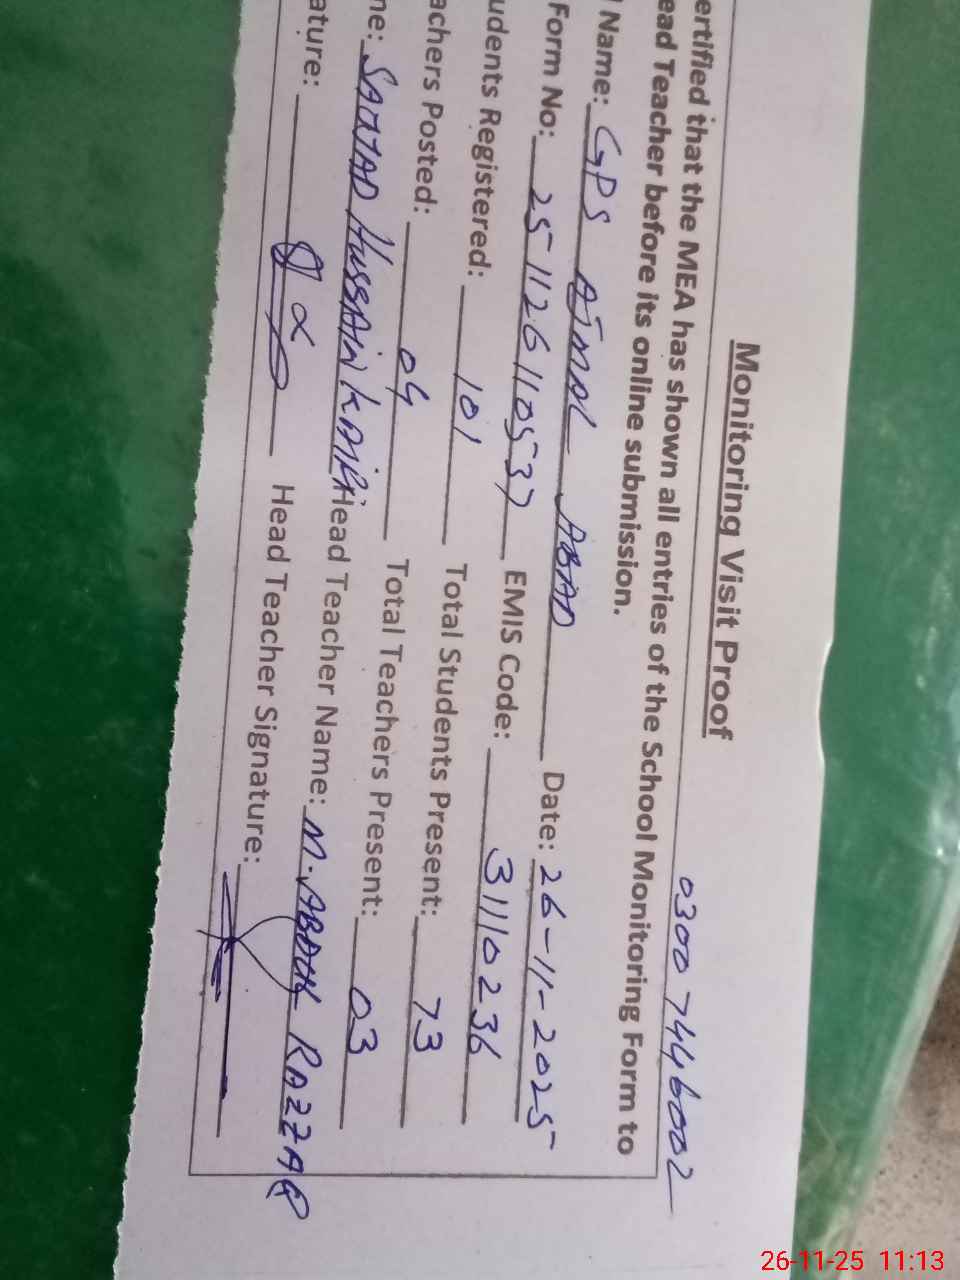 0300 7446002
Monitoring Visit Proof
ertified that the MEA has shown all entries of the School Monitoring Form to
ead Teacher before its online submission.
Name: GPS AJMAL ABAD Date: 26-11-2025
Form No: 251126110537 EMIS Code: 31110236
udents Registered: 101 Total Students Present: 73
achers Posted: 04 Total Teachers Present: 03
ne: SAJJAD HUSSAIN Head Teacher Name: M. ABDUL RAZZAQ
ature: Head Teacher Signature:
26-11-25 11:13